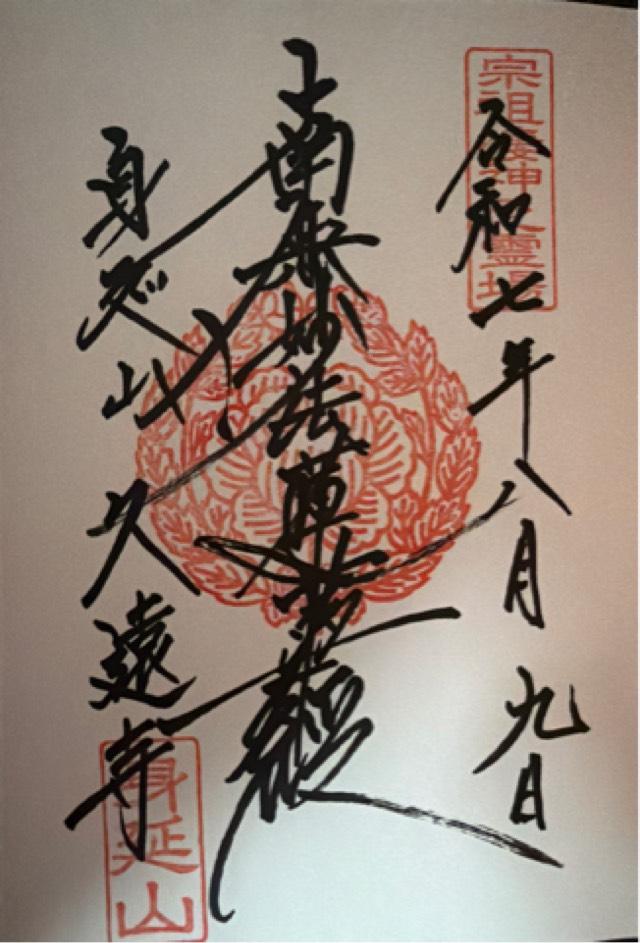 宗祖棲神之霊場
令和七年八月九日
南無妙法蓮華経
身延山久遠寺
身延山